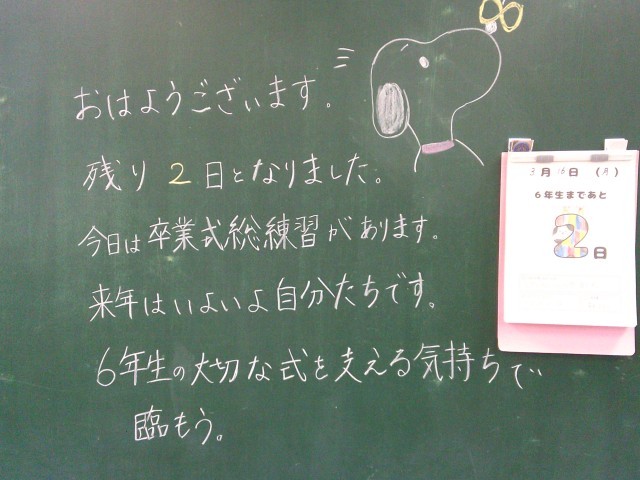 おはようございます。
残り2日となりました。
今日は卒業式総練習があります。
来年はいよいよ自分たちです。
6年生の大切な式を支える気持ちで
臨もう。
3月16日(月)
6年生まであと
2日